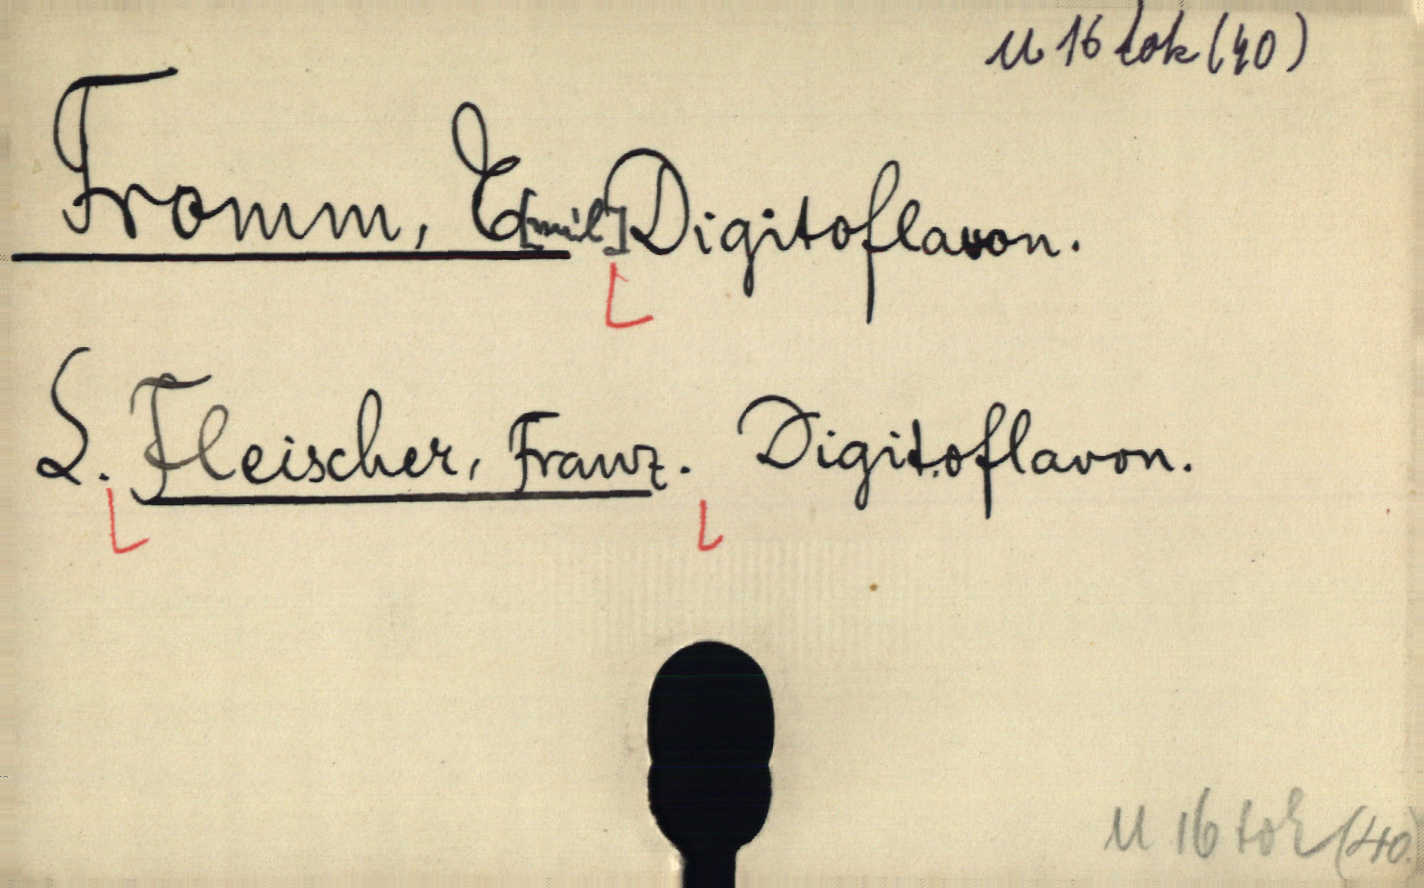 U 16 tok (40)
Fromm, E[mil] Digitoflavon.
S. Fleischer, Franz. Digitoflavon.
U 16 tok (40)